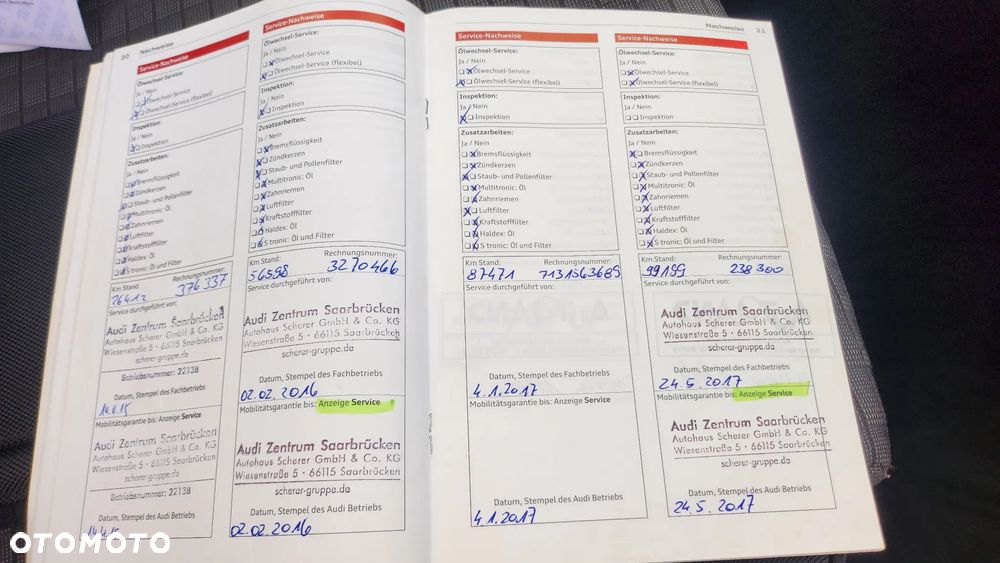 20 Nachweise
Service-Nachweise
Ölwechsel-Service:
Ja / Nein
Ölwechsel-Service
Ölwechsel-Service (flexibel)
Inspektion:
Ja / Nein
Inspektion
Zusatzarbeiten:
Ja / Nein
Bremsflüssigkeit
Zündkerzen
Staub- und Pollenfilter
Multitronic: Öl
Zahnriemen
Luftfilter
Kraftstofffilter
Haldex: Öl
S tronic: Öl und Filter
Km Stand: Rechnungsnummer:
26412 376337
Service durchgeführt von:
Audi Zentrum Saarbrücken
Autohaus Scherer GmbH & Co. KG
Wiesenstraße 5 • 66115 Saarbrücken
scherer-gruppe.de
Betriebsnummer: 22138
Datum, Stempel des Fachbetriebs
14.4.15
Mobilitätsgarantie bis: Anzeige Service
Audi Zentrum Saarbrücken
Autohaus Scherer GmbH & Co. KG
Wiesenstraße 5 • 66115 Saarbrücken
scherer-gruppe.de
Betriebsnummer: 22138
Datum, Stempel des Audi Betriebs
14.4.15
Service-Nachweise
Ölwechsel-Service:
Ja / Nein
Ölwechsel-Service
Ölwechsel-Service (flexibel)
Inspektion:
Ja / Nein
Inspektion
Zusatzarbeiten:
Ja / Nein
Bremsflüssigkeit
Zündkerzen
Staub- und Pollenfilter
Multitronic: Öl
Zahnriemen
Luftfilter
Kraftstofffilter
Haldex: Öl
S tronic: Öl und Filter
Km Stand: Rechnungsnummer:
56598 3270466
Service durchgeführt von:
Audi Zentrum Saarbrücken
Autohaus Scherer GmbH & Co. KG
Wiesenstraße 5 • 66115 Saarbrücken
scherer-gruppe.de
Datum, Stempel des Fachbetriebs
02.02.2016
Mobilitätsgarantie bis: Anzeige Service
Audi Zentrum Saarbrücken
Autohaus Scherer GmbH & Co. KG
Wiesenstraße 5 • 66115 Saarbrücken
scherer-gruppe.de
Datum, Stempel des Audi Betriebs
02.02.2016
Nachweise 21
Service-Nachweise
Ölwechsel-Service:
Ja / Nein
Ölwechsel-Service
Ölwechsel-Service (flexibel)
Inspektion:
Ja / Nein
Inspektion
Zusatzarbeiten:
Ja / Nein
Bremsflüssigkeit
Zündkerzen
Staub- und Pollenfilter
Multitronic: Öl
Zahnriemen
Luftfilter
Kraftstofffilter
Haldex: Öl
S tronic: Öl und Filter
Km Stand: Rechnungsnummer:
87471 7131563689
Service durchgeführt von:
Datum, Stempel des Fachbetriebs
4.1.2017
Mobilitätsgarantie bis: Anzeige Service
Datum, Stempel des Audi Betriebs
4.1.2017
Service-Nachweise
Ölwechsel-Service:
Ja / Nein
Ölwechsel-Service
Ölwechsel-Service (flexibel)
Inspektion:
Ja / Nein
Inspektion
Zusatzarbeiten:
Ja / Nein
Bremsflüssigkeit
Zündkerzen
Staub- und Pollenfilter
Multitronic: Öl
Zahnriemen
Luftfilter
Kraftstofffilter
Haldex: Öl
S tronic: Öl und Filter
Km Stand: Rechnungsnummer:
99199 238300
Service durchgeführt von:
Audi Zentrum Saarbrücken
Autohaus Scherer GmbH & Co. KG
Wiesenstraße 5 • 66115 Saarbrücken
scherer-gruppe.de
Datum, Stempel des Fachbetriebs
24.5.2017
Mobilitätsgarantie bis: Anzeige Service
Audi Zentrum Saarbrücken
Autohaus Scherer GmbH & Co. KG
Wiesenstraße 5 • 66115 Saarbrücken
scherer-gruppe.de
Datum, Stempel des Audi Betriebs
24.5.2017
OTOMOTO